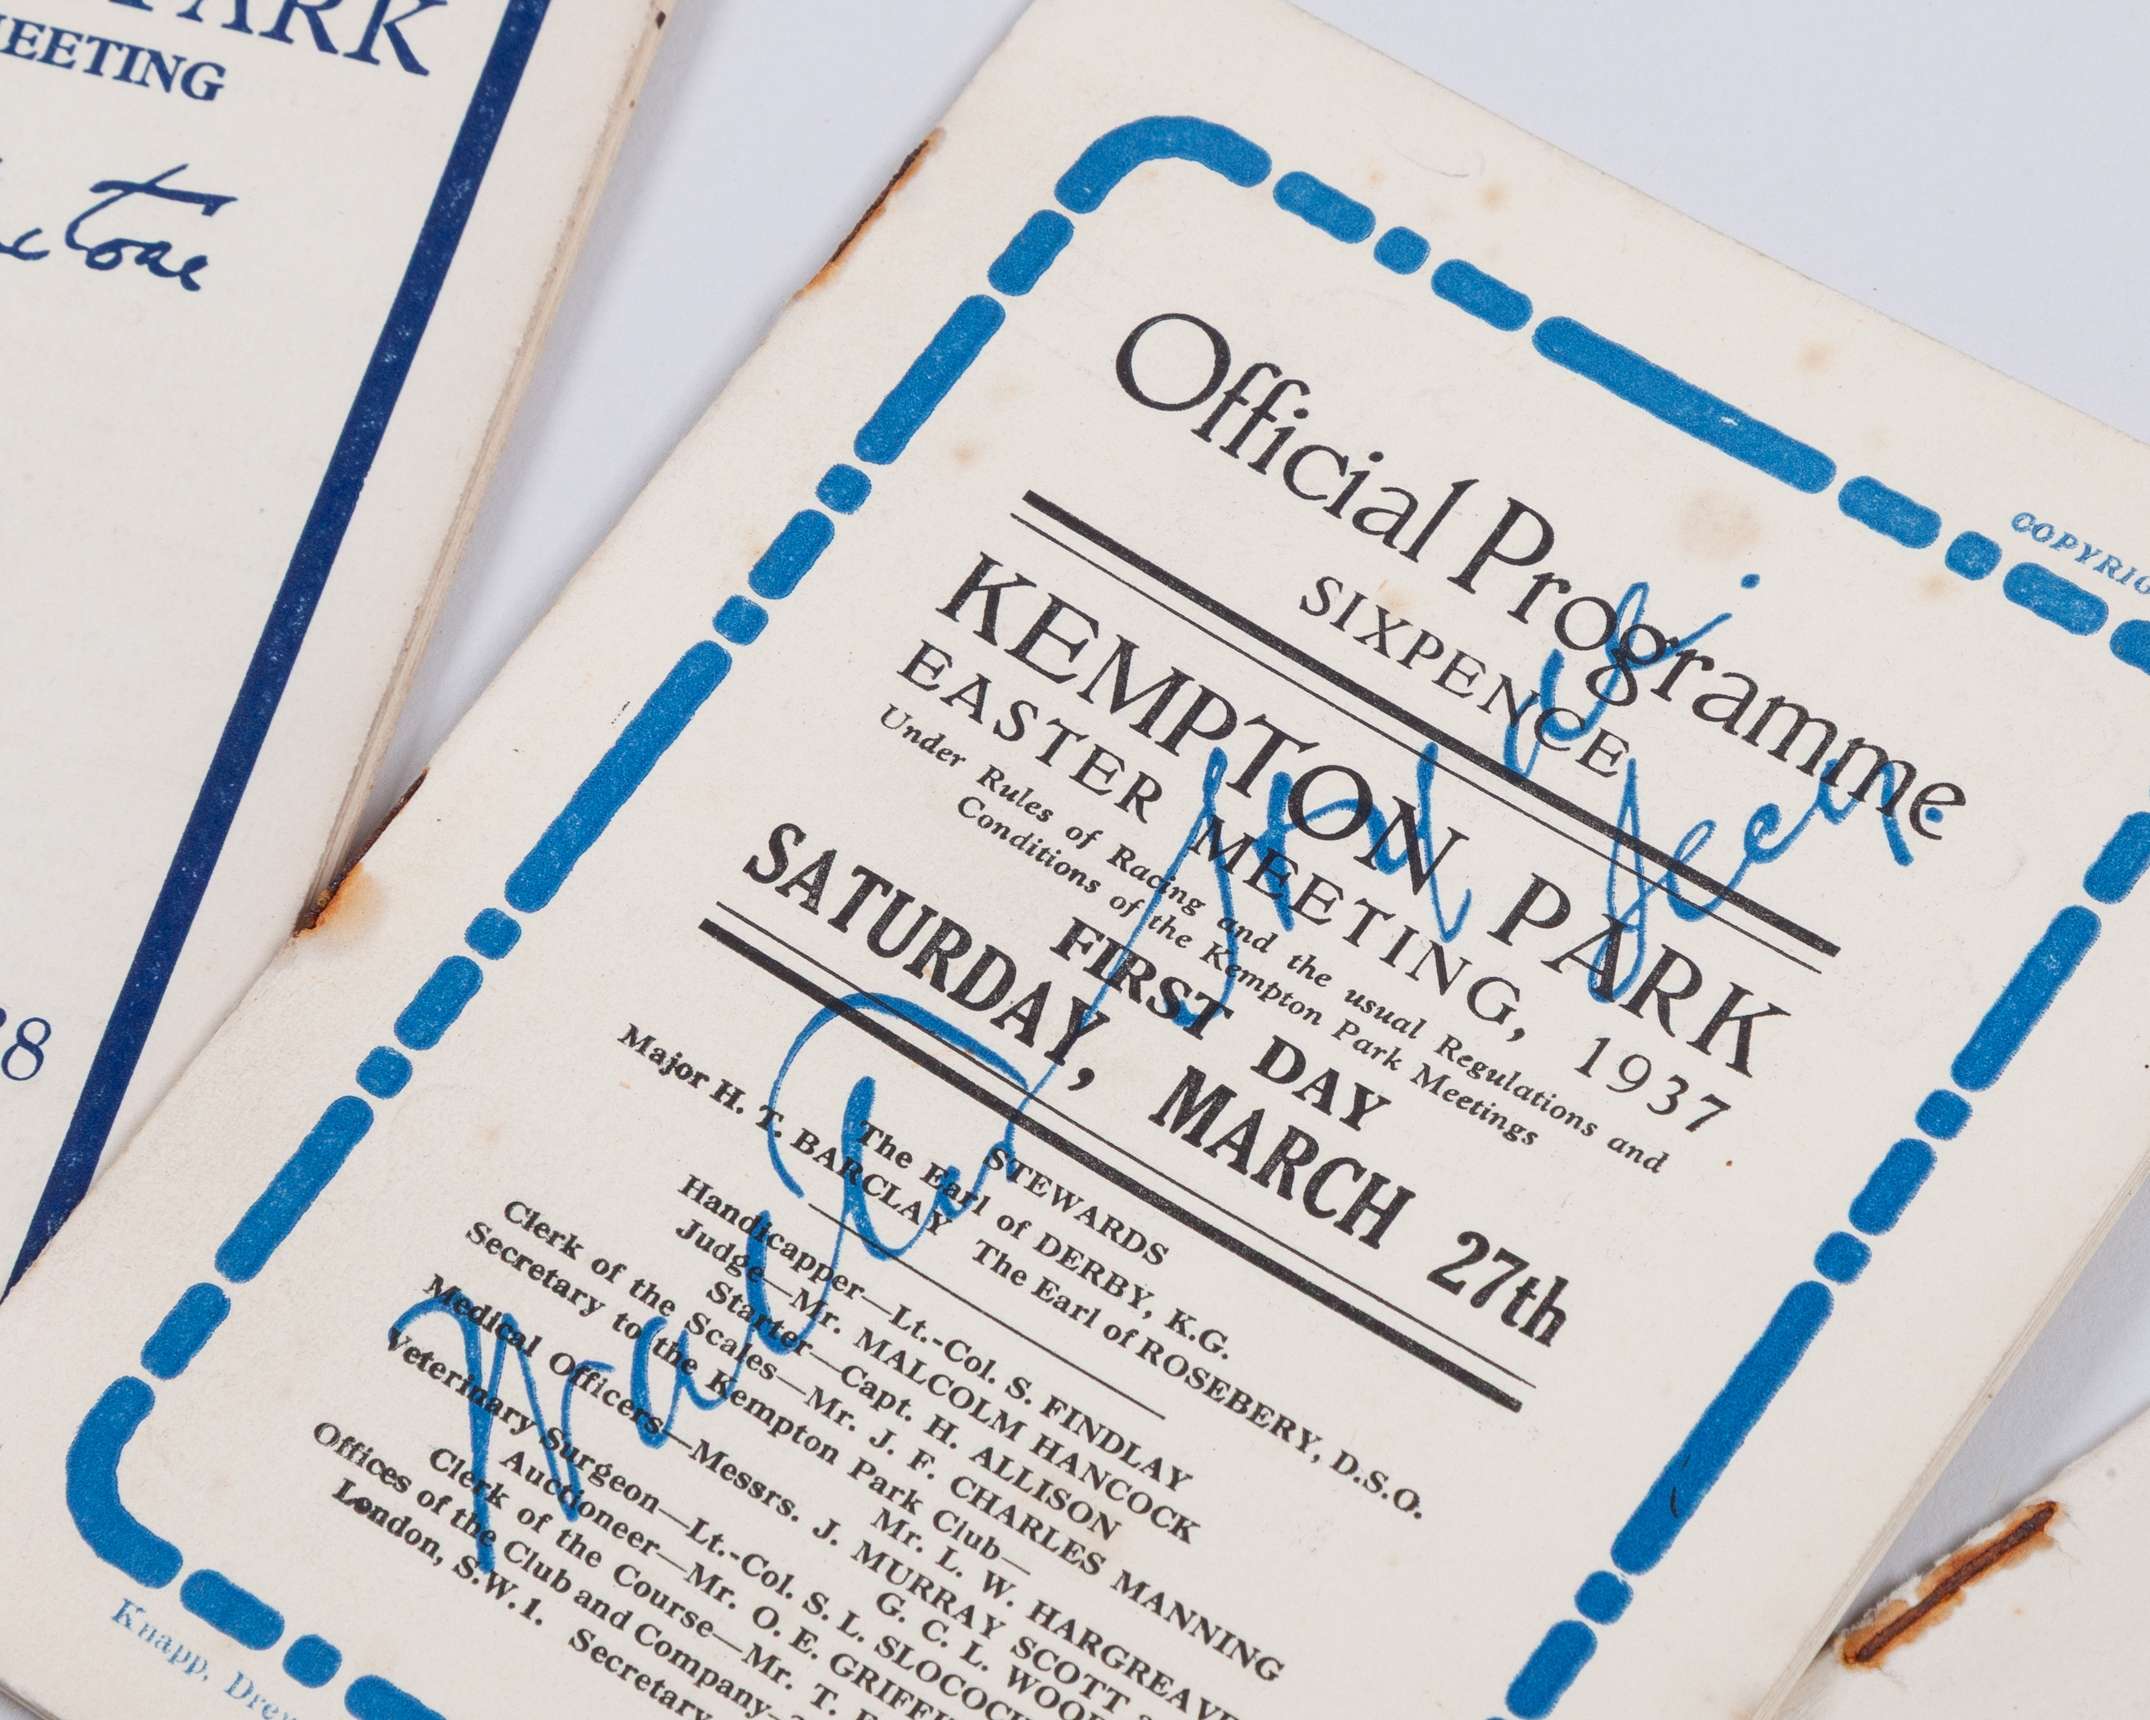 PARK
MEETING
8
COPYRIG
Official Programme
SIXPENCE
KEMPTON PARK
EASTER MEETING, 1937
Under Rules of Racing and the usual Regulations and
Conditions of the Kempton Park Meetings
FIRST DAY
SATURDAY, MARCH 27th
STEWARDS
The Earl of DERBY, K.G.
Major H. T. BARCLAY The Earl of ROSEBERY, D.S.O.
Handicapper—Lt.-Col. S. FINDLAY
Judge—Mr. MALCOLM HANCOCK
Starter—Capt. H. ALLISON
Clerk of the Scales—Mr. J. F. CHARLES MANNING
Secretary to the Kempton Park Club—
Mr. L. W. HARGREAVE
Medical Officers—Messrs. J. MURRAY SCOTT &
G. C. L. WOO
Veterinary Surgeon—Lt.-Col. S. L. SLOCOCK
Auctioneer—Mr. O. E. GRIFFI
Clerk of the Course—Mr. T.
Offices of the Club and Company—
London, S.W.1. Secretary
Knapp, Drew